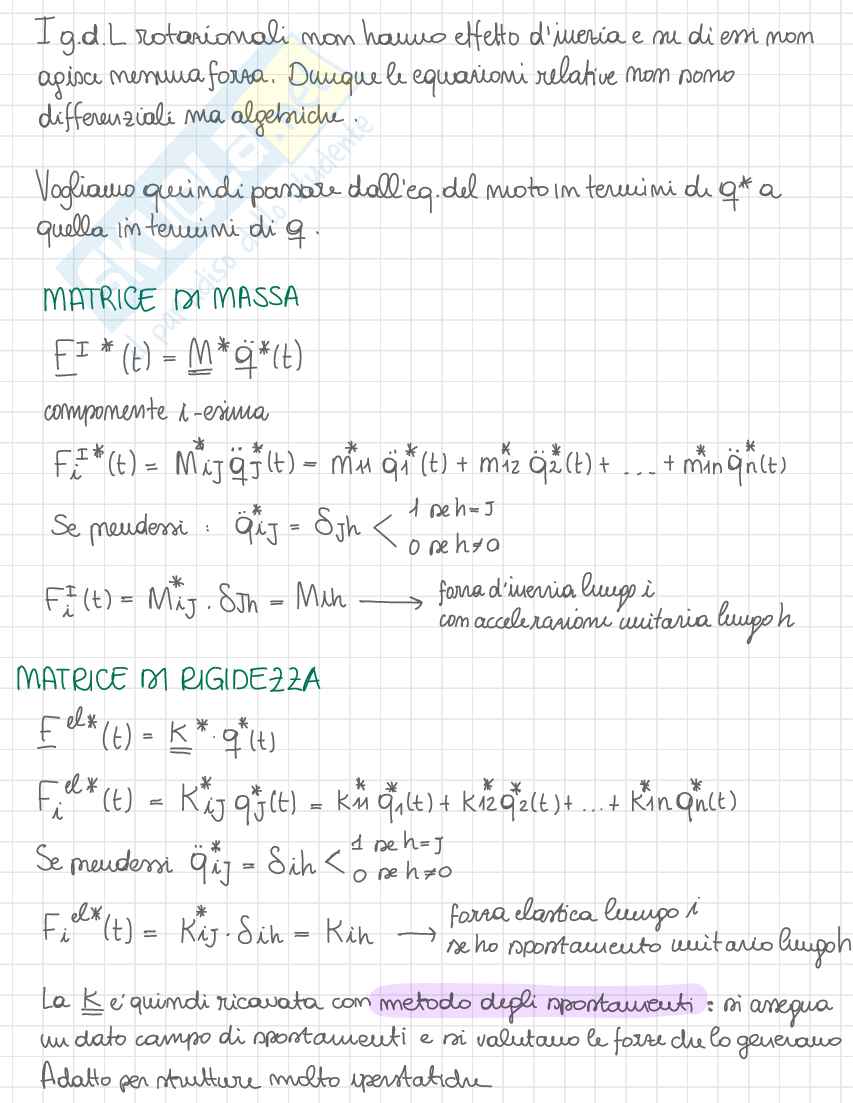 I g.d.L rotazionali non hanno effetto d'inerzia e su di essi non
agisce nessuna forza. Dunque le equazioni relative non sono
differenziali ma algebriche.
Vogliamo quindi passare dall'eq. del moto in termini di q* a
quella in termini di q.
MATRICE DI MASSA
F^I*(t) = M* q̈*(t)
componente i-esima
F_i^I*(t) = M*_iJ q̈*_J(t) = m*_11 q̈*_1(t) + m*_12 q̈*_2(t) + ... + m*_1n q̈*_n(t)
Se prendessi : q̈*_iJ = δ_Jh < 1 se h=J
0 se h≠0
F_i^I(t) = M*_iJ · δ_Jh = M_ih → forza d'inerzia lungo i
con accelerazione unitaria lungo h
MATRICE DI RIGIDEZZA
F^el*(t) = K* · q*(t)
F_i^el*(t) = K*_iJ q*_J(t) = K*_11 q*_1(t) + K*_12 q*_2(t) + ... + K*_1n q*_n(t)
Se prendessi q̈*_iJ = δ_ih < 1 se h=J
0 se h≠0
F_i^el*(t) = K*_iJ · δ_ih = K_ih → forza elastica lungo i
se ho spostamento unitario lungo h
La K è quindi ricavata con metodo degli spostamenti : si assegna
un dato campo di spostamenti e si valutano le forze che lo generano
Adatto per strutture molto iperstatiche
SKUOLA.net
il paradiso dello studente